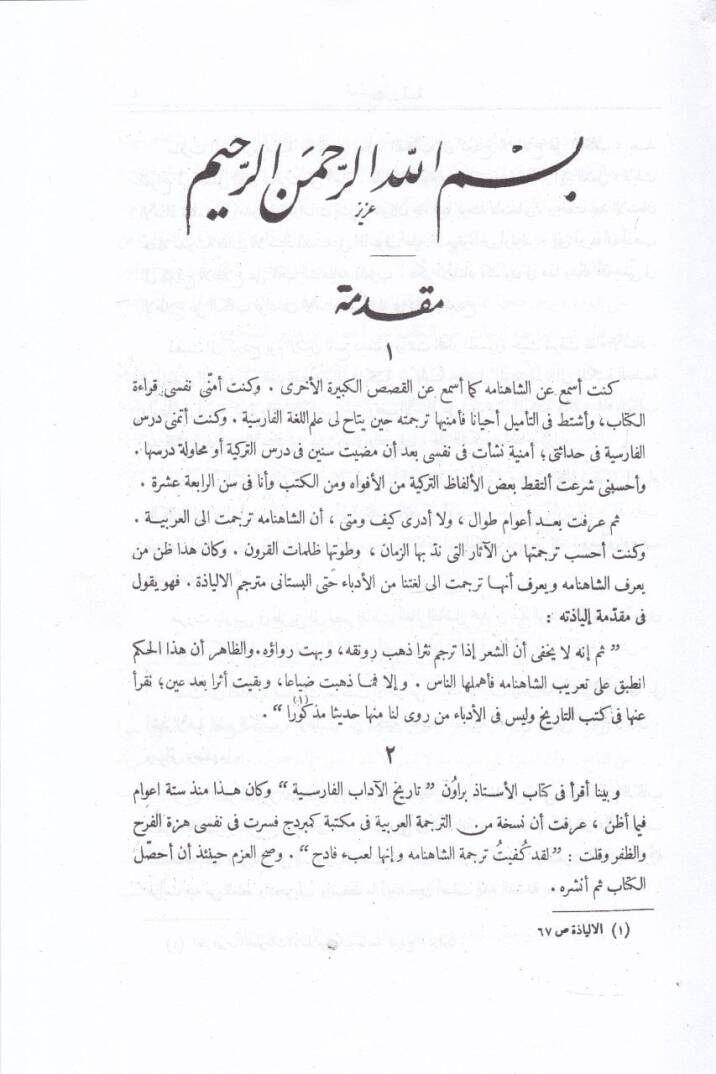 بسم الله الرحمن الرحيم
عزيز
مقدمة
١
كنت أسمع عن الشاهنامه كما أسمع عن القصص الكبيرة الأخرى . وكنت أمنّي نفسى قراءة
الكتاب، وأشتط فى التأميل أحيانا فأمنيها ترجمته حين يتاح لى علم اللغة الفارسية . وكنت أتمنى درس
الفارسية فى حداثتى؛ أمنية نشأت فى نفسى بعد أن مضيت سنين فى درس التركية أو محاولة درسها.
وأحسبنى شرعت ألتقط بعض الألفاظ التركية من الأفواه ومن الكتب وأنا فى سن الرابعة عشرة .
ثم عرفت بعد أعوام طوال ، ولا أدرى كيف ومتى ، أن الشاهنامه ترجمت الى العربية .
وكنت أحسب ترجمتها من الآثار التى ندّ بها الزمان ، وطوتها ظلمات القرون . وكان هذا ظن من
يعرف الشاهنامه ويعرف أنها ترجمت الى لغتنا من الأدباء حتى البستانى مترجم الالياذة . فهو يقول
فى مقدّمة إلياذته :
” ثم إنه لا يخفى أن الشعر إذا ترجم نثرا ذهب رونقه، وبهت رواؤه. والظاهر أن هذا الحكم
انطبق على تعريب الشاهنامه فأهملها الناس . وإلا فما ذهبت ضياعا، وبقيت أثرا بعد عين؛ نقرأ
عنها فى كتب التاريخ وليس فى الأدباء من روى لنا منها حديثا مذكورا(١) “ .
٢
وبينا أقرأ فى كتاب الأستاذ براوُن ” تاريخ الآداب الفارسية “ وكان هذا منذ ستة اعوام
فيما أظن ، عرفت أن نسخة من الترجمة العربية فى مكتبة كمبردج فسرت فى نفسى هزة الفرح
والظفر وقلت : ”لقد كُفيتُ ترجمة الشاهنامه وإنها لعبء فادح “ . وصح العزم حينئذ أن أحصّل
الكتاب ثم أنشره .
(١) الالياذة ص ٦٧